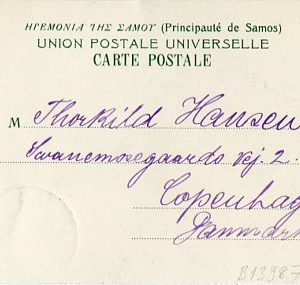 ΗΓΕΜΟΝΙΑ ΤΗΣ ΣΑΜΟΥ (Principauté de Samos)
UNION POSTALE UNIVERSELLE
CARTE POSTALE
M Thorkild Hansen
Svanemosegaards Vej. 2.
Copenhag
Danmark
B13987